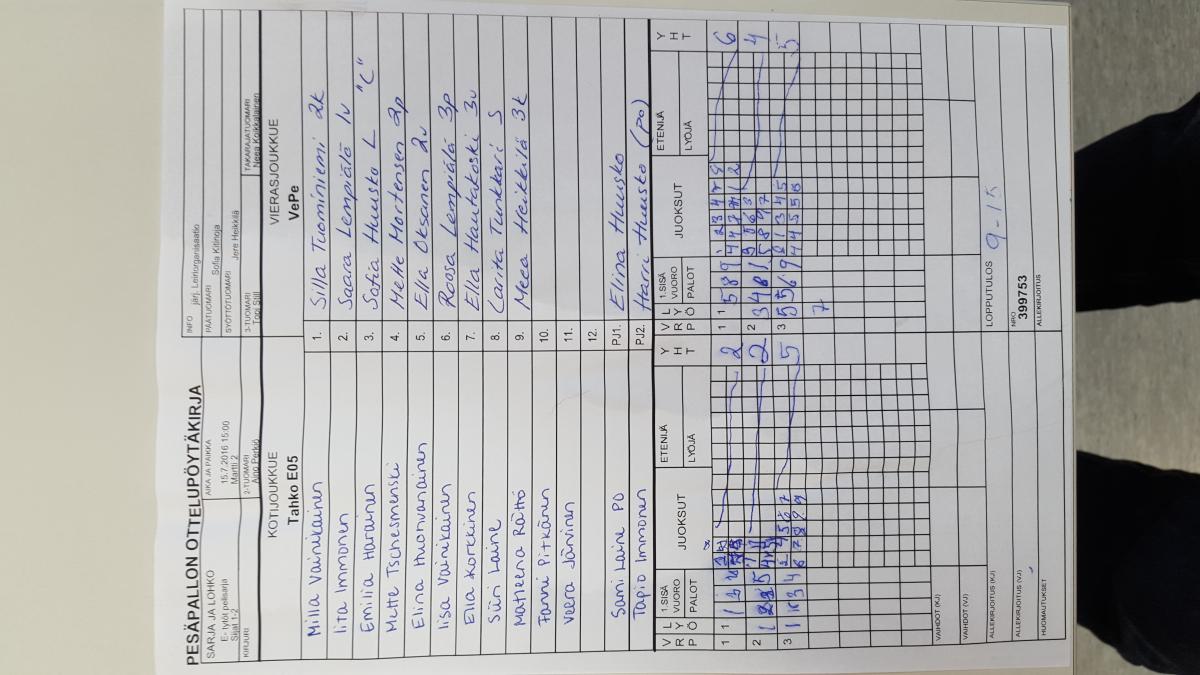 PESÄPALLON OTTELUPÖYTÄKIRJA
SARJA JA LOHKO
E- tytöt pelisarja
Sijat 1-2
AIKA JA PAIKKA
15.7.2016 15:00
Martti 2
INFO järj. Leiriorganisaatio
PÄÄTUOMARI Sofia Kitinoja
SYÖTTÖTUOMARI Jere Heikkilä
KIRJURI
2-TUOMARI
Aino Perkiö
3-TUOMARI
Topi Still
TAKARAJATUOMARI
Neea Koikkalainen
KOTIJOUKKUE
Tahko E05
VIERASJOUKKUE
VePe
Milla Vainikainen 1. Silla Tuominiemi 2k
Iita Immonen 2. Saara Lempiälä 1v
Emilia Harainen 3. Sofia Huusko L "C"
Mette Tschesmenski 4. Mette Mortensen 2p
Elina Huovanainen 5. Ella Oksanen 2v
Iisa Vainikainen 6. Roosa Lempiälä 3p
Ella Korckinen 7. Ella Hautakoski 3v
Siiri Laine 8. Carita Tunkkari S
Matleena Rättö 9. Meea Heikkilä 3k
Fanni Pitkänen 10.
Veera Järvinen 11.
12.
Sami Laine PO PJ1. Elina Huusko
Tapio Immonen PJ2. Harri Huusko (PO)
V R P
L Y Ö
1.SISÄ VUORO
PALOT
JUOKSUT
ETENIJÄ
LYÖJÄ
Y H T
V R P
L Y Ö
1.SISÄ VUORO
PALOT
JUOKSUT
ETENIJÄ
LYÖJÄ
Y H T
1 2
1 6
2 2
2 4
3 5
3 5
7
VAIHDOT (KJ)
VAIHDOT (VJ)
ALLEKIRJOITUS (KJ)
LOPPUTULOS 9-15
ALLEKIRJOITUS (VJ)
NRO
399753
HUOMAUTUKSET
ALLEKIRJOITUS